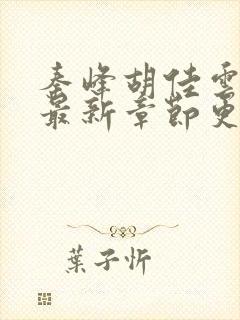 秦峰胡佳雲
最新章節更
葉子忻